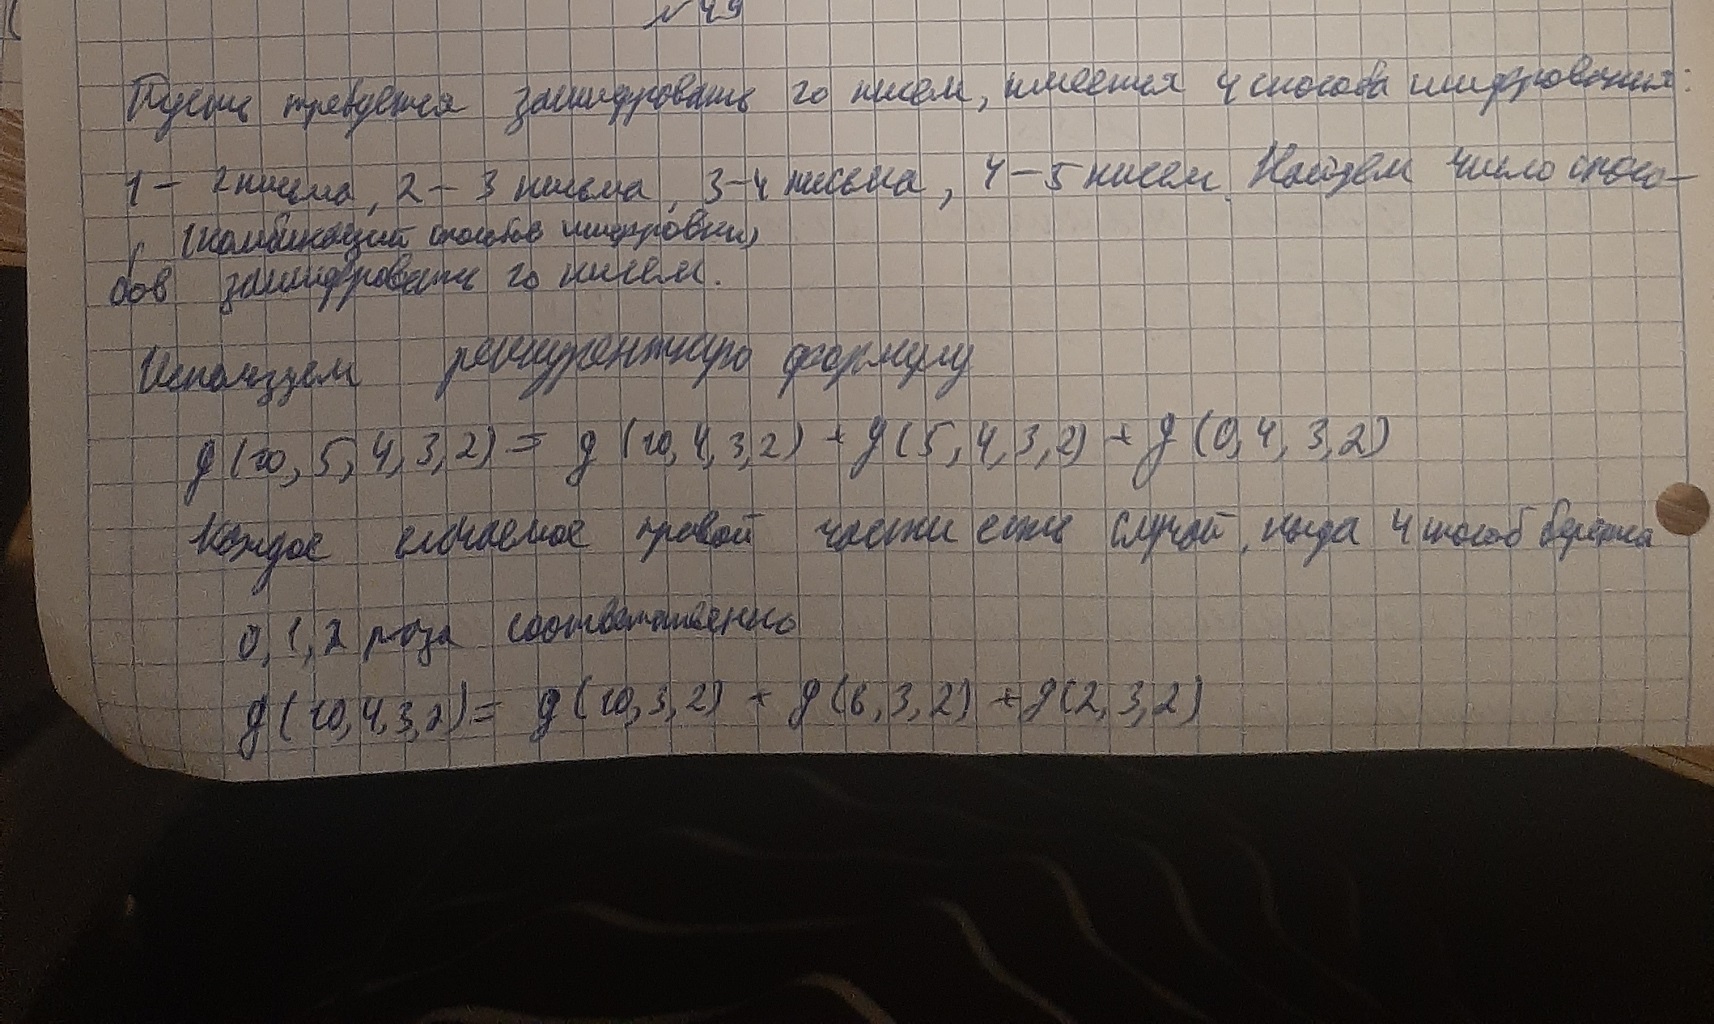 №49
Пусть требуется зашифровать 10 писем, имеется 4 способа шифрования:
1 - 2 письма, 2 - 3 письма, 3 - 4 письма, 4 - 5 писем. Найдем число спосо-
(комбинаций способов шифровки)
бов зашифровать 10 писем.
Используем рекуррентную формулу
g(10, 5, 4, 3, 2) = g(10, 4, 3, 2) + g(5, 4, 3, 2) + g(0, 4, 3, 2)
Каждое слагаемое правой части есть случай, когда 4 способ берется
0, 1, 2 раза соответственно
g(10, 4, 3, 2) = g(10, 3, 2) + g(6, 3, 2) + g(2, 3, 2)